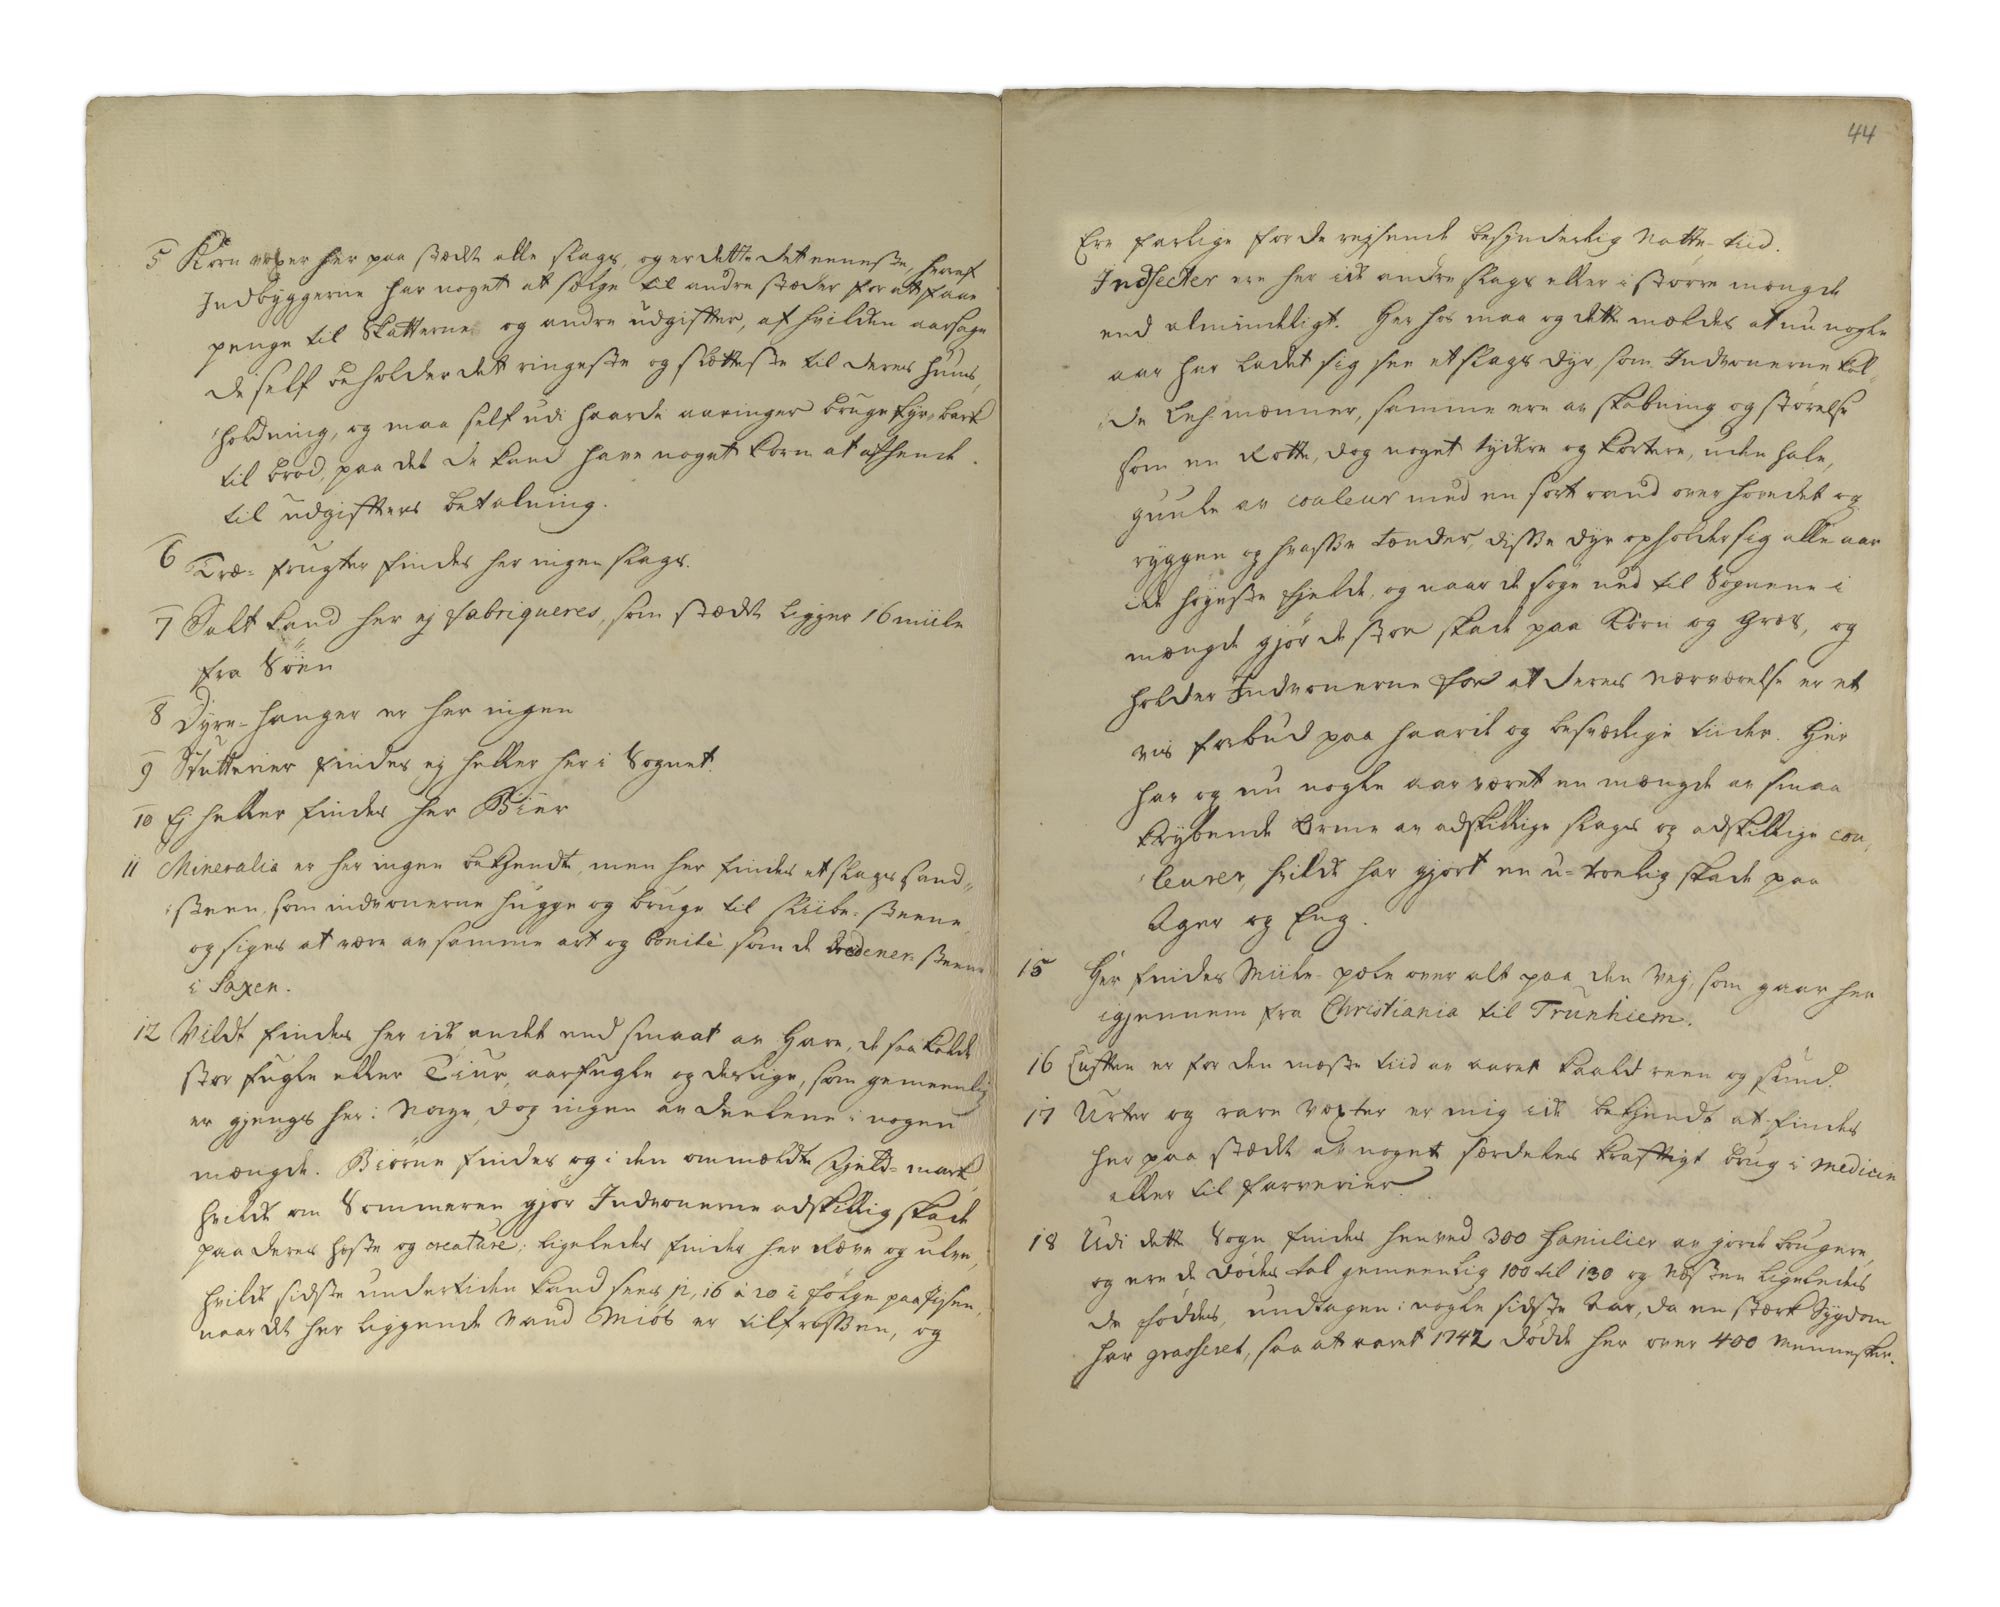 5 Korn voxer her paa stædet alle slags, og er dette det eeneste, hvraf
Indbyggerne har noget at sælge til andre stæder for at faae
penge til Skatterne og andre udgifter, af hvilken aarsage
de self beholder det ringeste og slætteste til deres huus,
holdning, og maa self udi haarde aaringer bruge fyr-bark
til brød, paa det de kand have noget korn at afhende
til udgifters betalning.
6 Træ-frugter findes her ingen slags.
7 Salt kand her ej fabriqueres, som stædet ligger 16 miile
fra Søen
8 Dyre-hauger er her ingen
9 Stutterier findes ej heller her i Sognet.
10 Ej heller findes her Bier
11 Mineralia er her ingen bekjendt, men her findes et slags sand,,
steen, som indvonerne hugge og bruge til sliibe-steene
og siges at være av samme art og bonité som de steene
i Saxen.
12 Vildt findes her ick andet end smaat av Hare, de saa kalde
stor fugle eller Tiur, aarfugle og deslige, som gemeenlig
er gjengs her i Norge, dog ingen av deelene i nogen
mængde. Biörne findes og i den ommældte Fjeld-mark,
hvilcke om Sommeren gjör Indvonerne adskillig skade
paa deres heste og creature; ligeledes findes her Ræve og ulve,
hvilcke sidste undertiden kand sees 12, 16 à 20 i fölge paa Jisen,
naar det her liggende Vand Miös er tilfrossen, og
44
Ere farlige for de rejsende besynderlig Natte-tiid.
Indsecter ere her ick andre slags eller i större mængde
end almindeligt. Her hos maa og dette mældes at nu nogle
aar har ladet sig see et slags dyr, som Indvonerne kal,,
de Leh-mænner, samme ere av skabning og störelse
som en Rotte, dog noget tyckere og kortere, uden hale,
guule av couleur med en sort rand over hovedet og
ryggen og hvasse tænder, disse dyr opholder sig alle aar
i de höyeste fjelde, og naar de söge ned til Sognene i
mængde gjör de stor skade paa Korn og græs, og
holder Indvonerne for at deres nærværelse er et
vis forbud paa haarde og besværlige tiider. Her
har og nu nogle aar været en mængde av smaa
krybende Orme av adskillige slags og adskillige cou,,
leurer, hvilcke har gjort en u-troelig skade paa
Ager og Eng.
15 Her findes Miile-pæle over alt paa den Vej, som gaar her
igjennem fra Christiania til Trunhiem.
16 Luften er for den mæste tiid av aaret kaald reen og sund.
17 Urter og rare voxter er mig ick bekjendt at findes
her paa stædet av noget særdeles kraftigt brug i Medicin
eller til farverier.
18 Udi dette Sogn findes henved 300 familier av gjorde brugere,
og ere de dödes tal gemeenlig 100 til 130 og næsten ligeledes
de föddes, undtagen i nogle sidste Aar, da en stærk Sygdom
har grasseret, saa at aaret 1742 dödde her over 400 Mennesker.